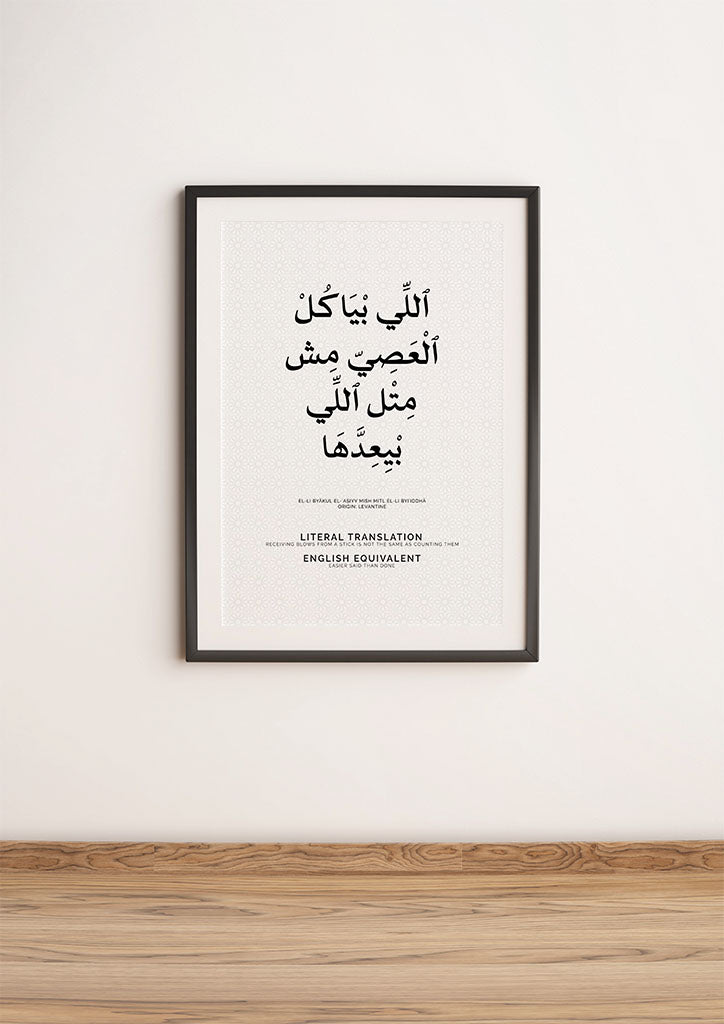 ٱللِّي بْيَاكُلْ
ٱلْعَصِيّ مِش
مِتْل ٱللِّي
بْيِعِدَّهَا
EL-LI BYĀKUL EL-ʿAṢIYY MISH MITL ÉL-LI BYIʿIDDHĀ
ORIGIN: LEVANTINE
LITERAL TRANSLATION
RECEIVING BLOWS FROM A STICK IS NOT THE SAME AS COUNTING THEM
ENGLISH EQUIVALENT
EASIER SAID THAN DONE